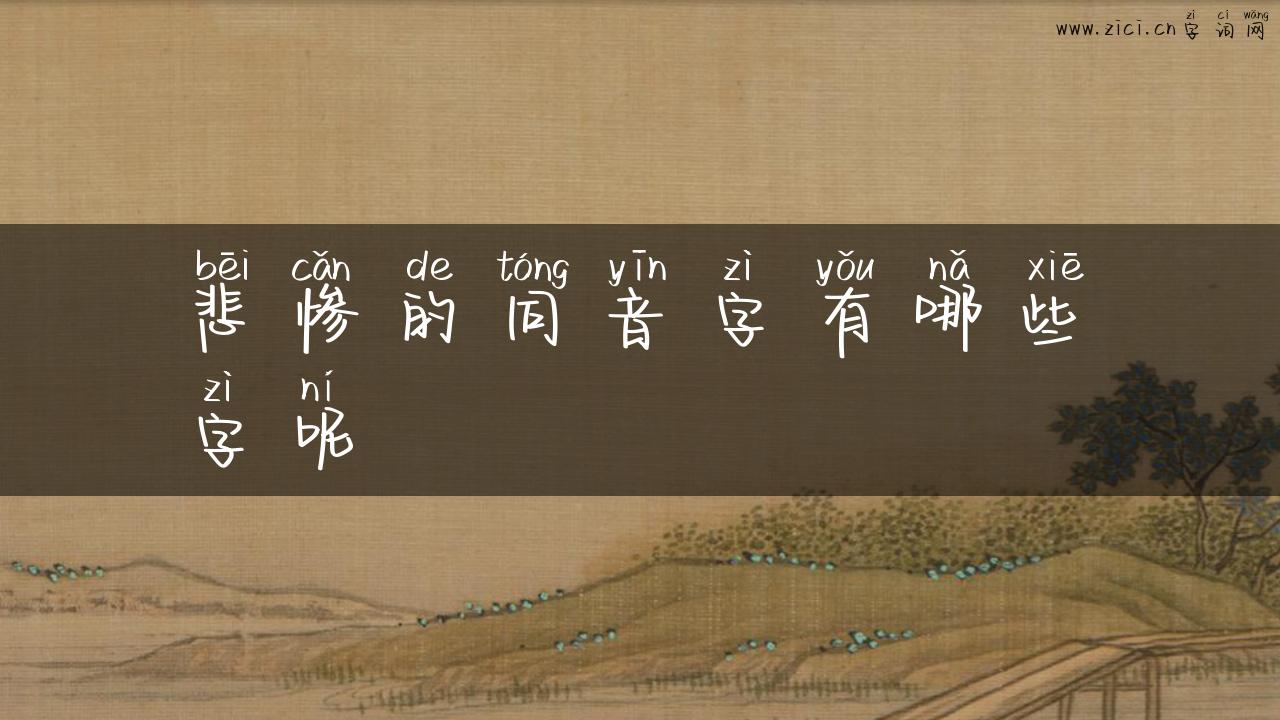 zì cí wǎng
www.zici.cn 字词网
bēi cǎn de tóng yīn zì yǒu nǎ xiē
悲惨的同音字有哪些
zì ní
字呢